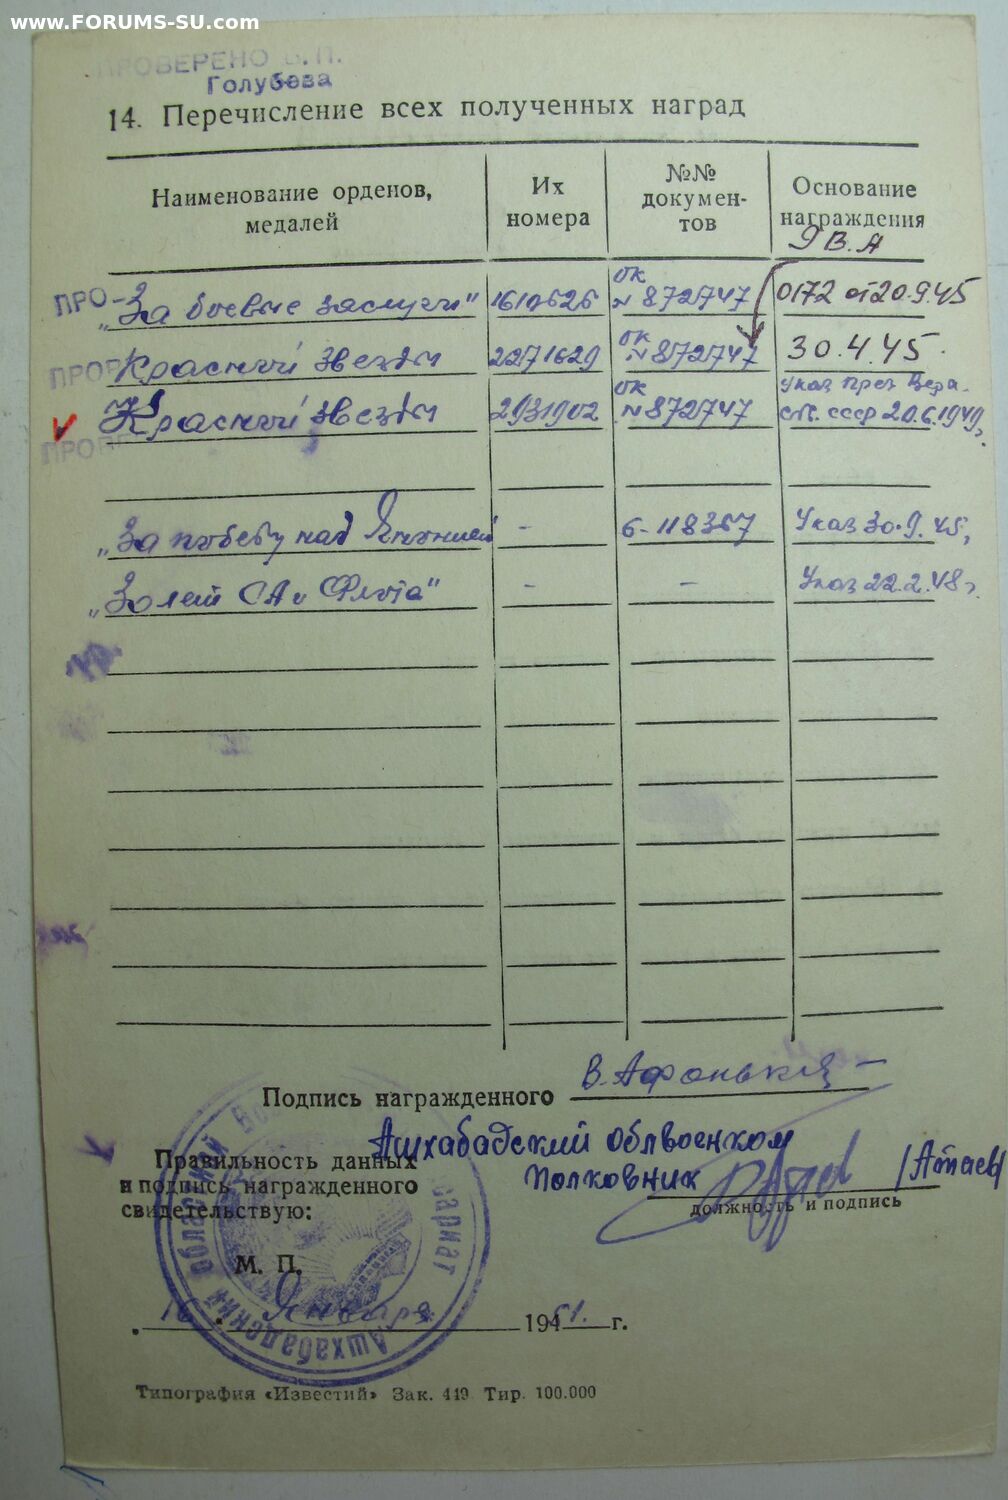 www.FORUMS-SU.com
ПРОВЕРЕНО В. П.
Голубева
14. Перечисление всех полученных наград
Наименование орденов, медалей
Их номера
№№ документов
Основание награждения
9 В.А
ПРО- „За боевые заслуги" 1610626 ок № 872747 0172 от 20.9.45
ПРО Красной звезды 2271629 ок № 872747 30.4.45.
Красной звезды 2931902 ок № 872747 Указ През Верх. Сов. СССР 20.6.1949г.
„За победу над Японией" - 6-118367 Указ 30.9.45г
„30 лет СА и Флота" - - Указ 22.2.48г.
Подпись награжденного В. Афонький
Ашхабадский облвоенком
Правильность данных
и подпись награжденного
свидетельствую:
Полковник /Атаев/
должность и подпись
М. П.
16 Января 1951. г.
Ашхабадский Областной
Типография «Известий» Зак. 449 Тир. 100.000